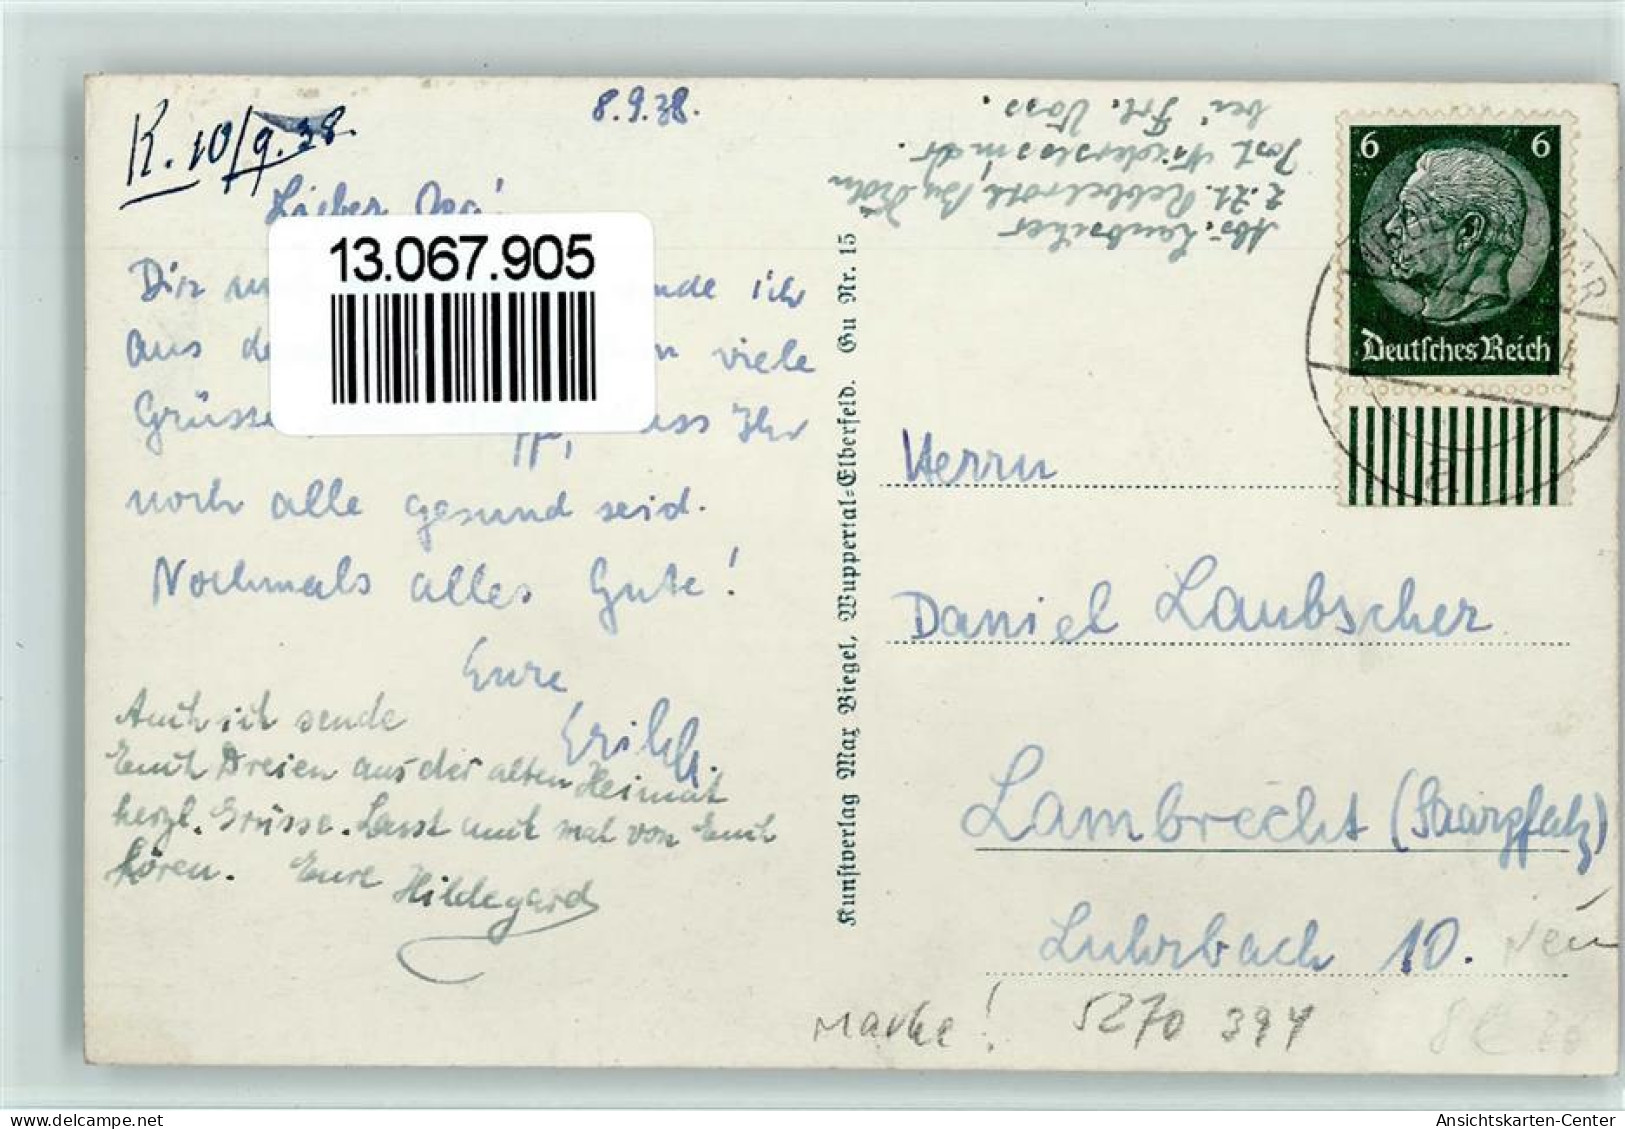 K. 10/9.38.
8.9.38.
Lieber Opa!
13.067.905
Dir und ich
aus viele
Grüsse Ihr
noch alle gesund seid.
Nochmals alles Gute!
Eure
Erich.
Auch ich sende
Euch Dreien aus der alten Heimat
herzl. Grüsse. Lasst mal von Euch
hören. Eure Hildegard
Kunstverlag Max Biegel, Wuppertal-Elberfeld. Gu Nr. 15
Abs. Laubscher
z. Zt. Rebbelroth
Post Niedersessmar
bei Frl. Voss.
6 6
Deutsches Reich
Herrn
Daniel Laubscher
Lambrecht (Saarpfalz)
Luhrbach 10.
Marke! 5270 394
Ansichtskarten-Center